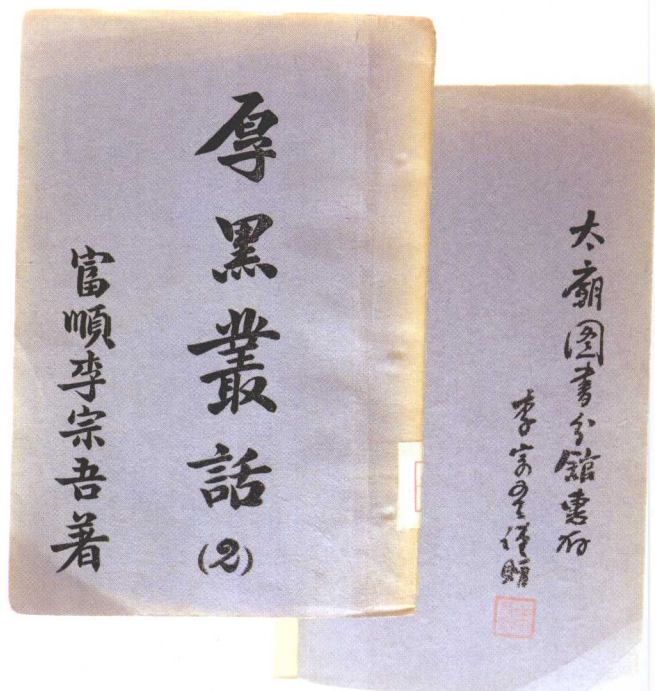 厚黑叢話
(2)
富順李宗吾著
太庙图書分館惠存
李宗吾謹贈